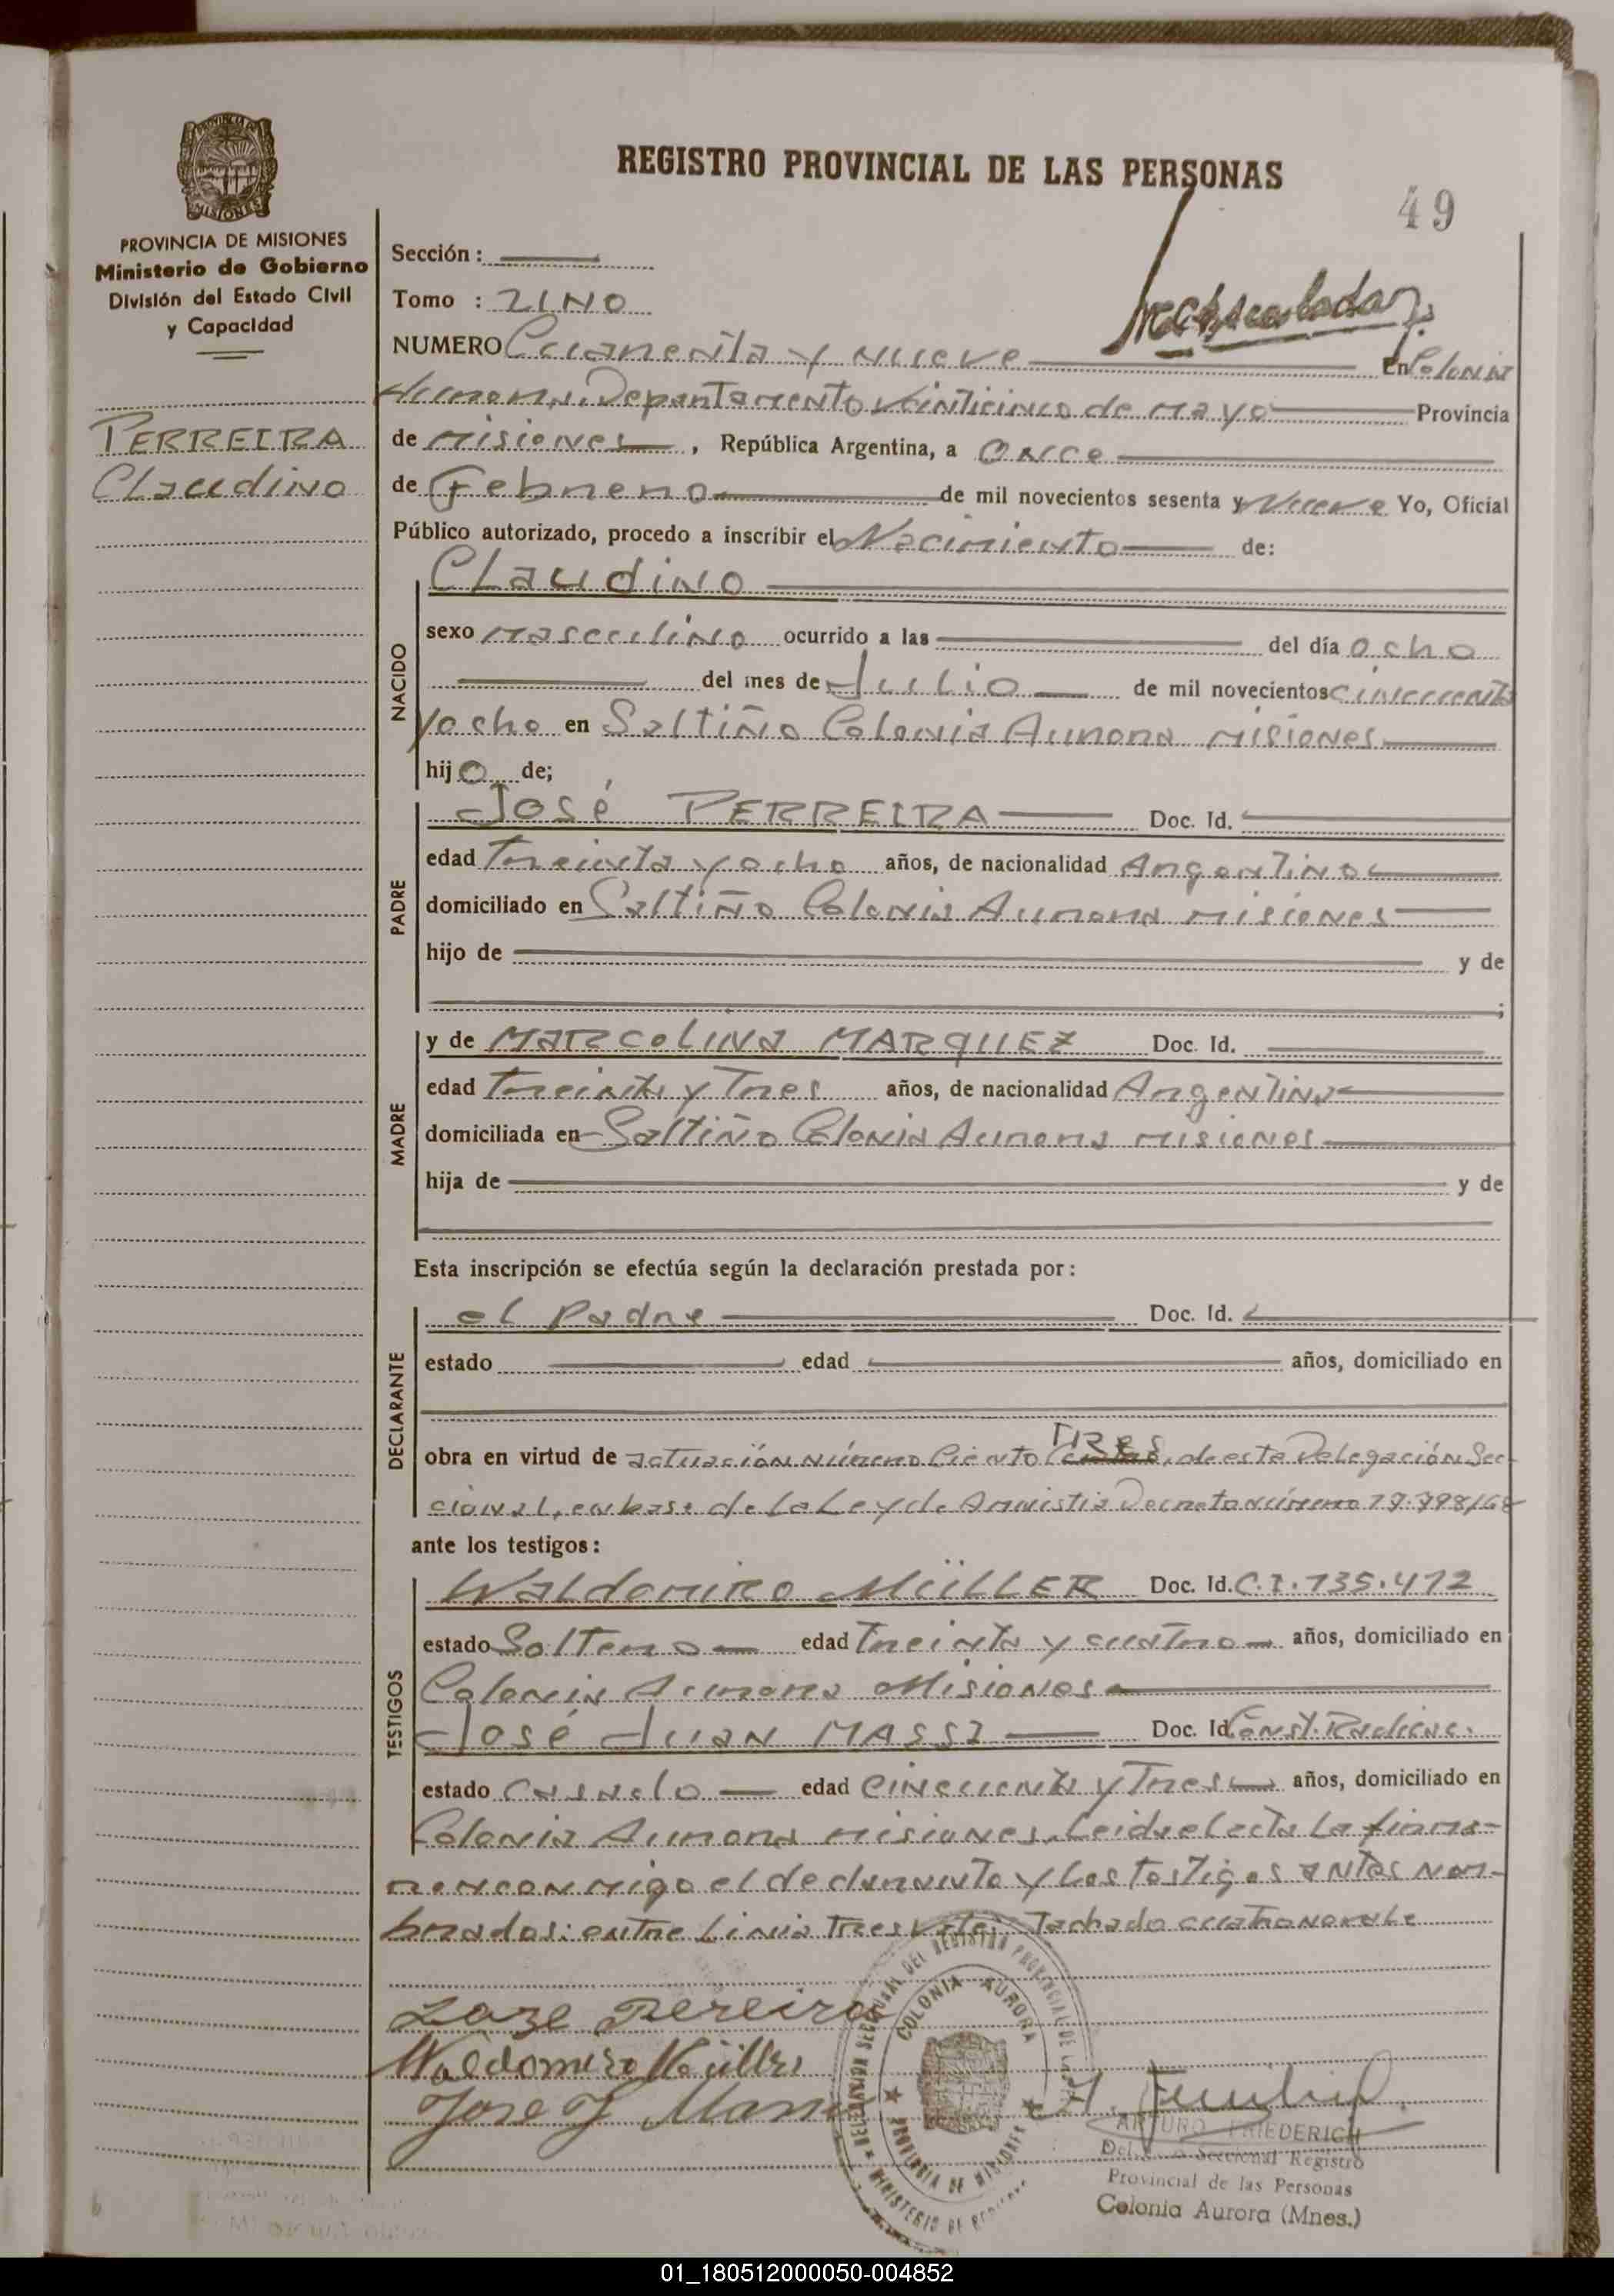 REGISTRO PROVINCIAL DE LAS PERSONAS
49
MISIONES
PROVINCIA DE MISIONES
Ministerio de Gobierno
División del Estado Civil
y Capacidad
PERREIRA
Claudino
Sección :
Tomo : 21NO
NUMERO Cuarenta y nueve En Colonia
Aurora, Departamento Veinticinco de Mayo Provincia
de Misiones , República Argentina, a Once
de Febrero de mil novecientos sesenta y Nueve Yo, Oficial
Público autorizado, procedo a inscribir el Nacimiento de:
NACIDO
Claudino
sexo Masculino ocurrido a las del día ocho
del mes de Julio de mil novecientos cincuenta
y ocho en Saltiño Colonia Aurora Misiones
hijo de;
PADRE
José PERREIRA Doc. Id.
edad Treinta y ocho años, de nacionalidad Argentino
domiciliado en Saltiño Colonia Aurora Misiones
hijo de y de
;
MADRE
y de MARCOLINA MARQUEZ Doc. Id.
edad Treinta y Tres años, de nacionalidad Argentina
domiciliada en Saltiño Colonia Aurora Misiones
hija de y de
Esta inscripción se efectúa según la declaración prestada por :
DECLARANTE
el Padre Doc. Id.
estado edad años, domiciliado en
TRES
obra en virtud de actuación número Ciento , de esta Delegación Sec-
cional, en base de la Ley de Amnistia Decreto número 17.798/68
ante los testigos :
TESTIGOS
Waldomiro MÜLLER Doc. Id. C.I. 135.412
estado Soltero edad Treinta y cuatro años, domiciliado en
Colonia Aurora Misiones
José Juan MASSI Doc. Id. Const. Radicac.
estado Casado edad Cincuenta y Tres años, domiciliado en
Colonia Aurora Misiones. Leida el acta la firma-
ron conmigo el declarante y los testigos antes nom-
brados: entre Linia Tres Vale: Tachado cuatro no vale
Joze Pereira
Waldomiro Müller
Jose J Massi
DELEGACION SECCIONAL DEL REGISTRO PROVINCIAL DE LAS
COLONIA AURORA
PROVINCIA DE MISIONES
MINISTERIO DE GOBIERNO
ARTURO FRIEDERICH
Delegado Seccional Registro
Provincial de las Personas
Colonia Aurora (Mnes.)
01_180512000050-004852